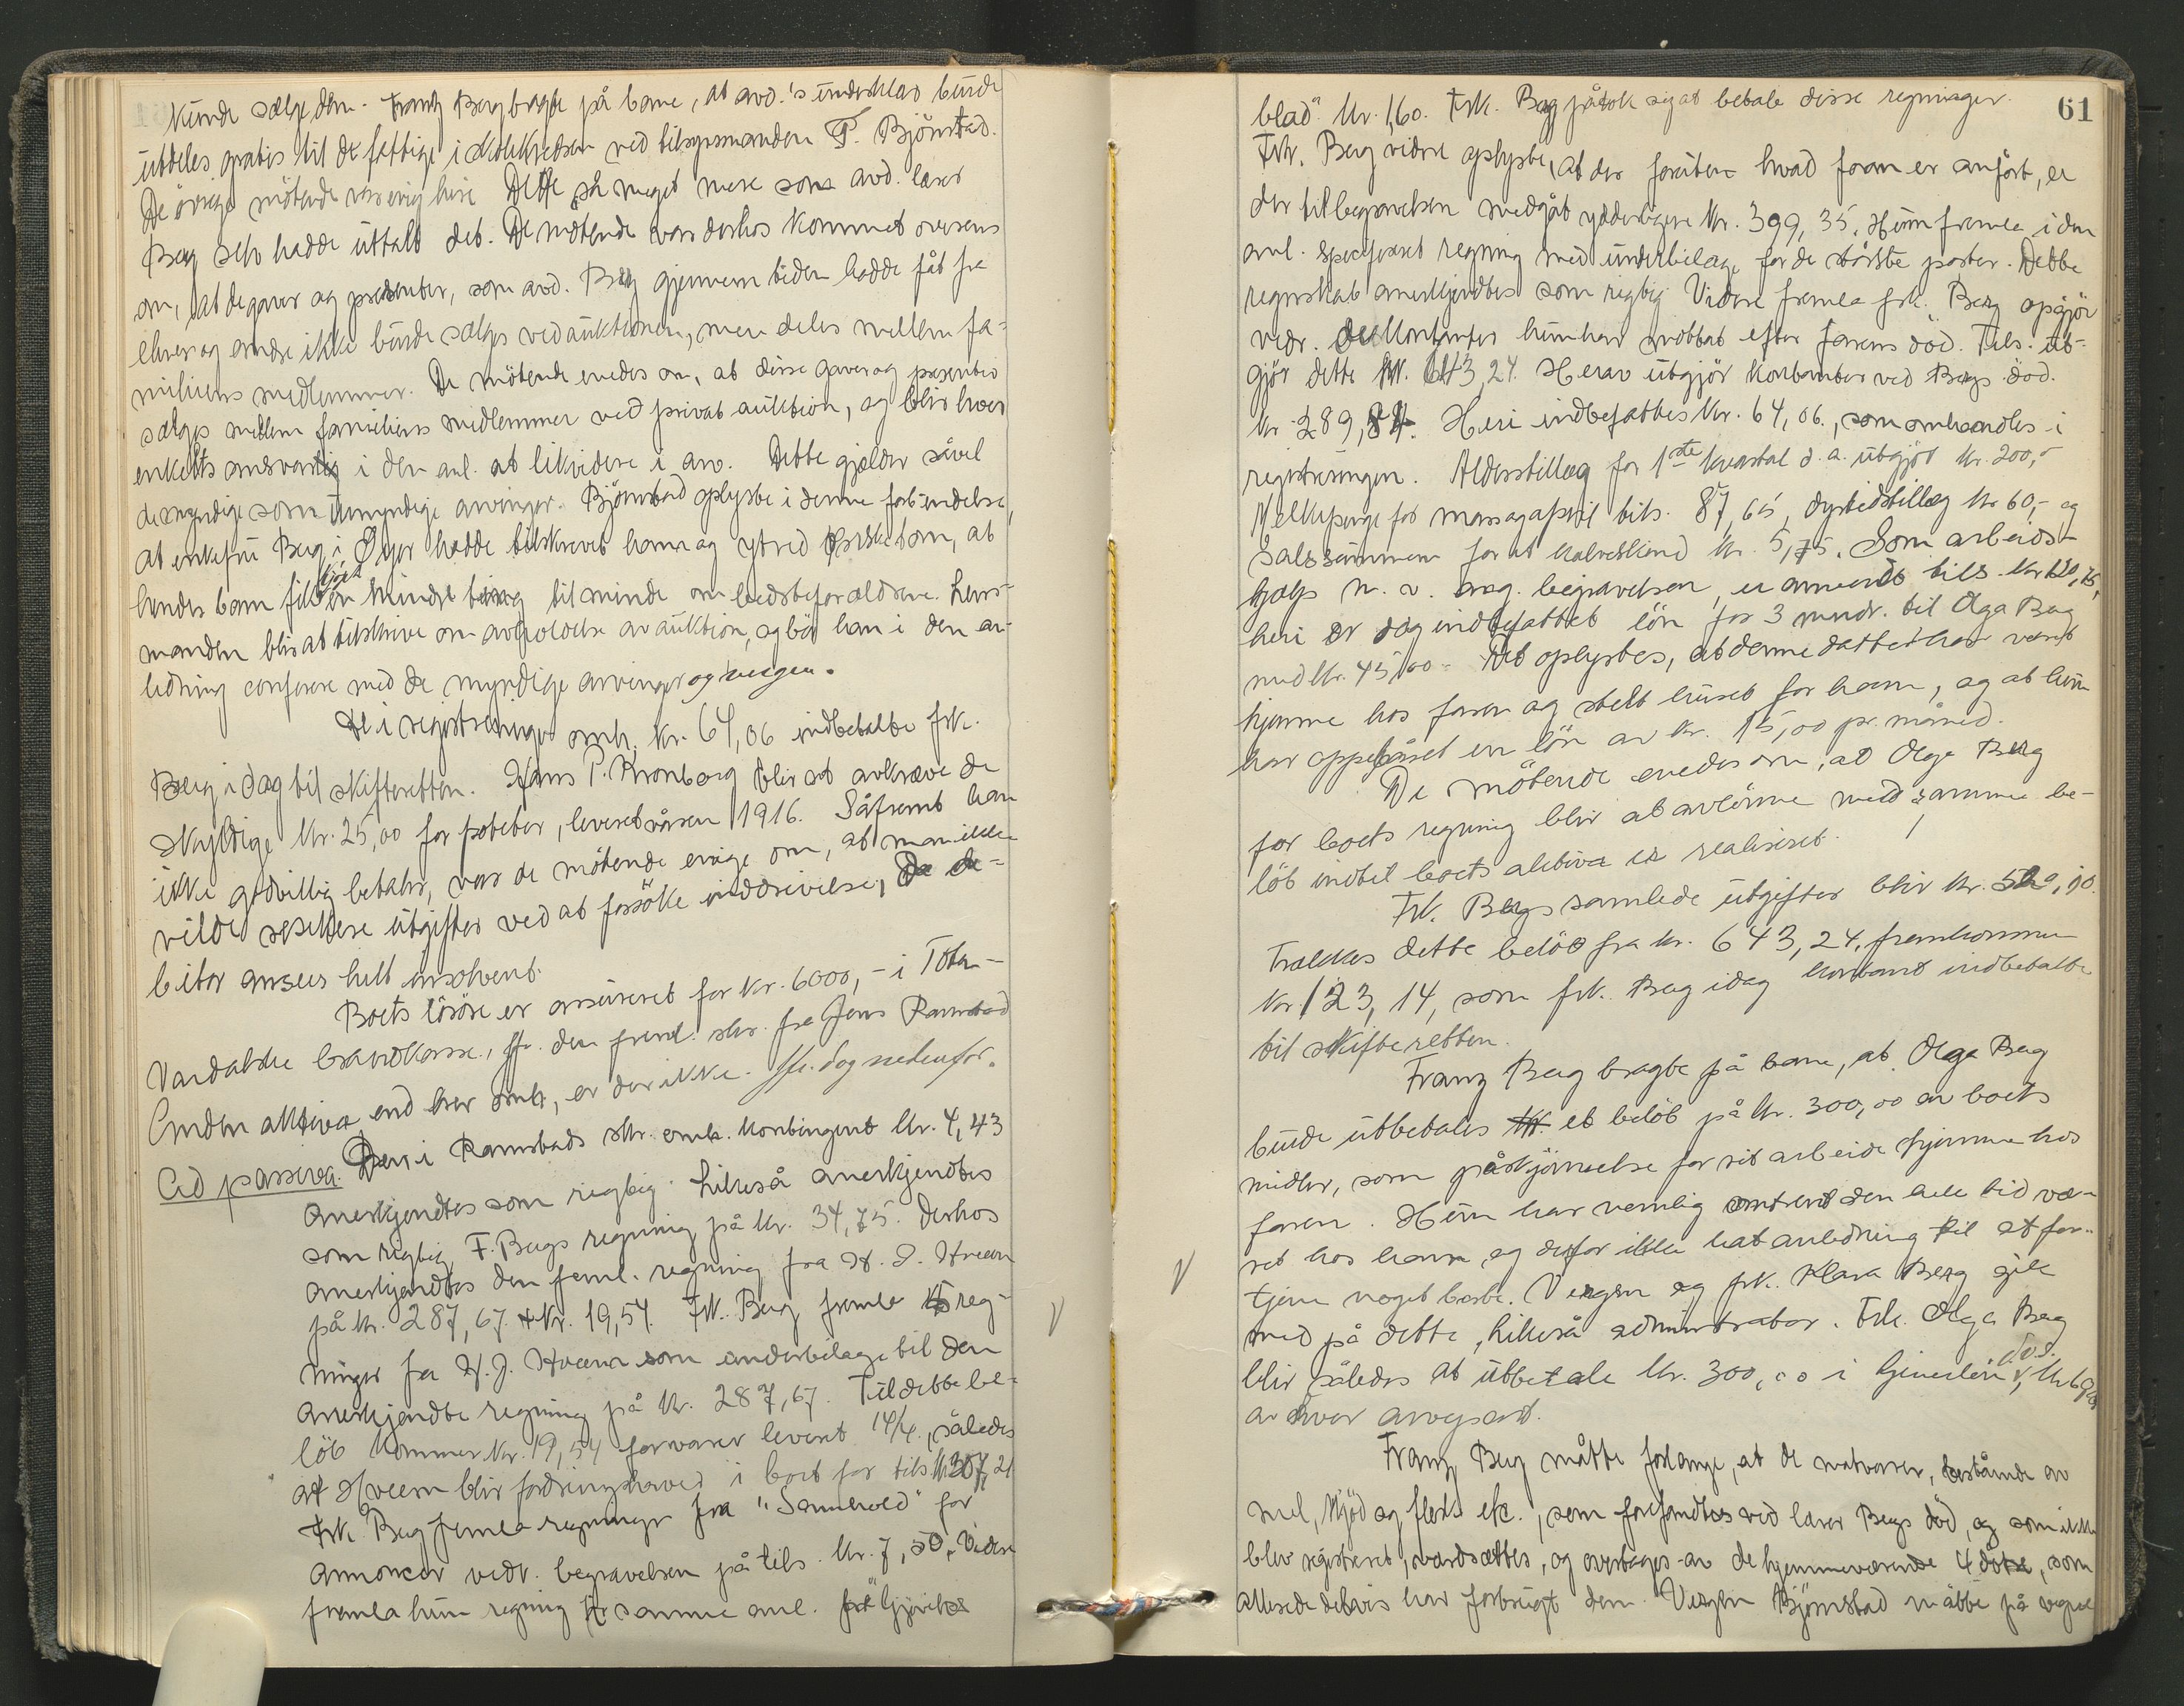 kunde sælge dem. Franz Berg bragte på bane, at avd.'s underklær burde
utdeles gratis til de fattige i skolekredsen ved tilsynsmanden T. Björnstad.
De övrige mötende var enig heri. Dette så meget mere som avd. lærer
Berg selv hadde uttalt det. De mötende var derhos kommet overens
om, at de gaver og presenter, som avd. Berg gjennem tiden hadde fåt fra
elever og andre ikke burde sælges ved auktionen, men deles mellem fa-
miliens medlemmer. De mötende enedes om, at disse gaver og presenter
sælges mellem familiens medlemmer ved privat auktion, og blir hver
enkelts ansvarlig i den anl. at likvidere i arv. Dette gjælder såvel
de myndige som umyndige arvinger. Björnstad oplyste i denne forbindelse,
at enkefru Berg i Öyer hadde tilskrevet ham og ytret önske om, at
hendes barn fik en mindre ting til minde om bedsteforældrene. Lens-
manden blir at tilskrive om avholdelse av auktion, og bör han i den an-
ledning conferere med de myndige arvinger og vergen.
De i registreringen omh. kr. 64,06 indbetalte frk.
Berg idag til skifteretten. Hans P. Kronborg blir at avkræve de
skyldige kr. 25,00 for poteter, leveret våren 1916. Såfremt han
ikke godvillig betaler, var de mötende enige om, at man ikke
vilde risikere utgifter ved at forsöke inddrivelse, da de-
bitor ansees helt insolvent.
Boets lösöre er assureret for kr. 6000,- i Toten-
Vardalske brandkasse, jfr. den freml. skr. fra Jens Ramstad
Anden aktiva end her omh., er der ikke. Jfr. dog nedenfor.
Ad passiva. Den i Ramstads skr. omh. kontingent kr. 4,43
anerkjendtes som rigtig. Likeså anerkjendtes
som rigtig F. Bergs regning på kr. 34,75. Derhos
anerkjendtes den freml. regning fra H. J. Hveem
på kr. 287,67 + kr. 19,54. Frk. Berg fremla reg-
ninger fra H. J. Hveem som underbilage til den
anerkjendte regning på kr. 287,67. Til dette be-
löb kommer kr. 19,54 for varer leveret 14/4, således
at Hveem blir fordringshaver i boet for tils. kr. 307,21
Frk. Berg fremla regninger fra "Samhold" for
annoncer vedr. begravelsen på tils. kr. 7,50. Videre
fremla hun regning for samme anl. fra "Gjöviks
61
blad" kr. 1,60. Frk. Berg påtok sig at betale disse regninger.
Frk. Berg videre oplyste, at der foruten hvad foran er anfört, er
der til begravelsen medgåt ydderligere kr. 399,35. Hun fremla i den
anl. specificeret regning med underbilage for de störste poster. Dette
regnskab anerkjendtes som rigtig. Videre fremla frk. Berg opgjör
vedr. de kontanter hun har mottat efter farens död. Tils. ut-
gjör dette kr. 643,24. Herav utgjör kontanter ved Bergs död.
kr. 289,84. Heri indbefattes kr. 64,06, som omhandles i
registreringen. Alderstillæg for 1ste kvartal d.a. utgjör kr. 200,-
Melkepenge for mars og april tils. 87,65, dyrtidstillæg kr 60,- og
salssummen for et kalveskind kr. 5,75. Som arbeids-
hjælp m. v. ang. begravelsen, er anvendt tils. kr. 120,75,
heri er dog indbefattet lön for 3 mndr. til Olga Berg
med kr. 45,00. Det oplystes, at denne datter har været
hjemme hos faren og stelt huset for ham, og at hun
har oppebåret en lön av kr. 15,00 pr. måned.
De mötende enedes om, at Olga Berg
for boets regning blir at avlönne med samme be-
löb indtil boets aktiva er realiseret.
Frk. Bergs samlede utgifter blir kr. 520,10.
Trækkes dette belöb fra kr. 643,24, fremkommer
kr. 123,14, som frk. Berg idag kontant indbetalte
til skifteretten.
Franz Berg bragte på bane, at Olga Berg
burde utbetales et belöb på kr. 300,00 av boets
midler, som påskjönnelse for sit arbeide hjemme hos
faren. Hun har nemlig omtrent den hele tid væ-
ret hos ham, og derfor ikke hat anledning til at for-
tjene noget borte. Vergen og frk. Klara Berg gik
med på dette, likeså administrator. Frk. Olga Berg
blir således at utbetale kr. 300,00 i hjemlön, d.v.s.
av hver arvepart.
Franz Berg måtte forlange, at de matvarer, bestående av
mel, kjöd og flesk etc., som forefandtes ved lærer Bergs död, og som ikke
blev registreret, værdsættes, og overtages av de hjemmeværende 4 dötre, som
allerede delvis har forbrugt dem. Vergen Björnstad måtte på vegne